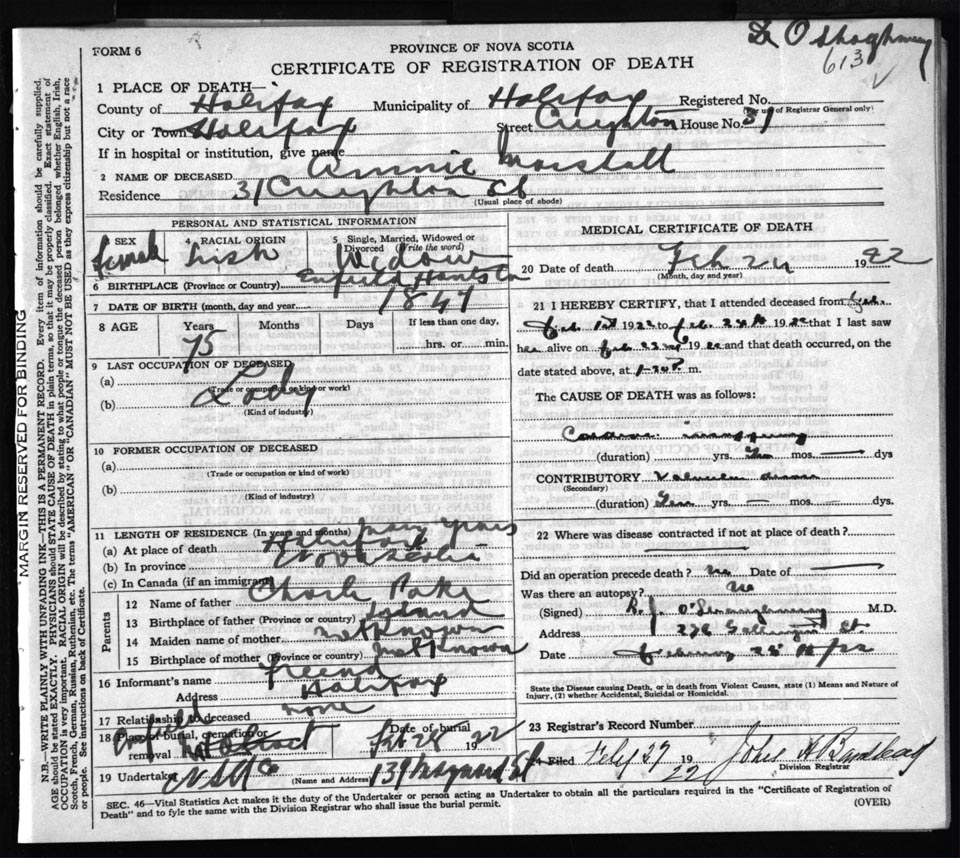 FORM 6
PROVINCE OF NOVA SCOTIA
CERTIFICATE OF REGISTRATION OF DEATH
613
1 PLACE OF DEATH—
County of Halifax Municipality of Halifax Registered No.
(For use of Registrar General only)
City or Town Halifax Street Creighton House No. 31
If in hospital or institution, give name
2 NAME OF DECEASED Annie Marshall
Residence 31 Creighton St
(Usual place of abode)
PERSONAL AND STATISTICAL INFORMATION
3 SEX female 4 RACIAL ORIGIN Irish 5 Single, Married, Widowed or Divorced (write the word) Widow
6 BIRTHPLACE (Province or Country) Enfield Hants Co
7 DATE OF BIRTH (month, day and year) 1847
8 AGE Years 75 Months Days If less than one day, hrs. or min.
9 LAST OCCUPATION OF DECEASED
(a) Lady
(Trade or occupation or kind or work)
(b)
(Kind of industry)
10 FORMER OCCUPATION OF DECEASED
(a)
(Trade or occupation or kind of work)
(b)
(Kind of industry)
11 LENGTH OF RESIDENCE (In years and months) Many years
(a) At place of death Halifax
(b) In province Nova Scotia
(c) In Canada (if an immigrant)
Parents
12 Name of father Charls
13 Birthplace of father (Province or country) Ireland
14 Maiden name of mother not known
15 Birthplace of mother (Province or country) not known
16 Informant's name Friend
Address Halifax
17 Relationship to deceased none
18 Place of burial, cremation or removal Enfield
Date of burial Feb 28 1922
19 Undertaker N S U Co 139 Maynard St
(Name and Address)
MEDICAL CERTIFICATE OF DEATH
20 Date of death Feb 24 1922
(Month, day and year)
21 I HEREBY CERTIFY, that I attended deceased from
Feb. 1st 1922 to Feb. 24th 1922 that I last saw
her alive on Feb 22 1922 and that death occurred, on the
date stated above, at m.
The CAUSE OF DEATH was as follows:
Cardiac
(duration) yrs. mos. dys
CONTRIBUTORY Valvular disease
(Secondary)
(duration) yrs. mos. dys.
22 Where was disease contracted if not at place of death?
Did an operation precede death? No Date of
Was there an autopsy? No
(Signed) R. J. O'Shaughnessy M.D.
Address St.
Date February
State the Disease causing Death, or in death from Violent Causes, state (1) Means and Nature of
Injury, (2) whether Accidental, Suicidal or Homicidal.
23 Registrar's Record Number
24 Filed Feby 27 1922 John A
Division Registrar
SEC. 46—Vital Statistics Act makes it the duty of the Undertaker or person acting as Undertaker to obtain all the particulars required in the "Certificate of Registration of
Death" and to fyle the same with the Division Registrar who shall issue the burial permit.
(OVER)
MARGIN RESERVED FOR BINDING
N.B.—WRITE PLAINLY WITH UNFADING INK—THIS IS A PERMANENT RECORD. Every item of information should be carefully supplied.
AGE should be stated EXACTLY. PHYSICIANS should STATE CAUSE OF DEATH in plain terms, so that it may be properly classified. Exact statement of
OCCUPATION is very important. RACIAL ORIGIN will be described by stating to what people or tongue the deceased person belonged whether English, Irish,
Scotch, French, German, Russian, Ruthenian, etc. The terms "AMERICAN" OR "CANADIAN" MUST NOT BE USED as they express citizenship but not a race
or people. See instructions on back of Certificate.